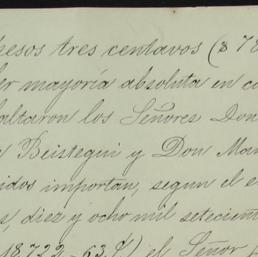 pesos tres centavos ($ 78
er mayoría absoluta en ca
faltaron los Señores Don
Beistegui y Don Man
idos importan, segun el e
s, diez y ocho mil setecient
18,722-63.¢) el Señor